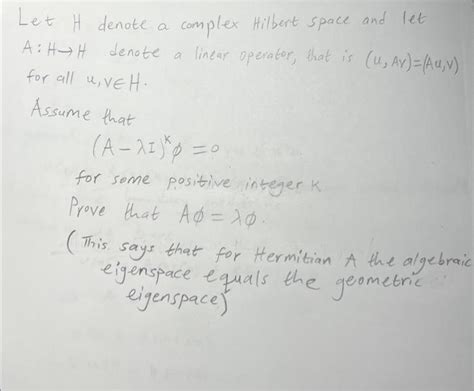 Let H denote a complex Hilbert space and let
A: H→H denote a linear operator, that is (u, Av)=(Au,v)
for all u,v∈H.
Assume that
(A - λI)^k ϕ = 0
for some positive integer K
Prove that Aϕ = λϕ.
(This says that for Hermitian A the algebraic
eigenspace equals the geometric
eigenspace)